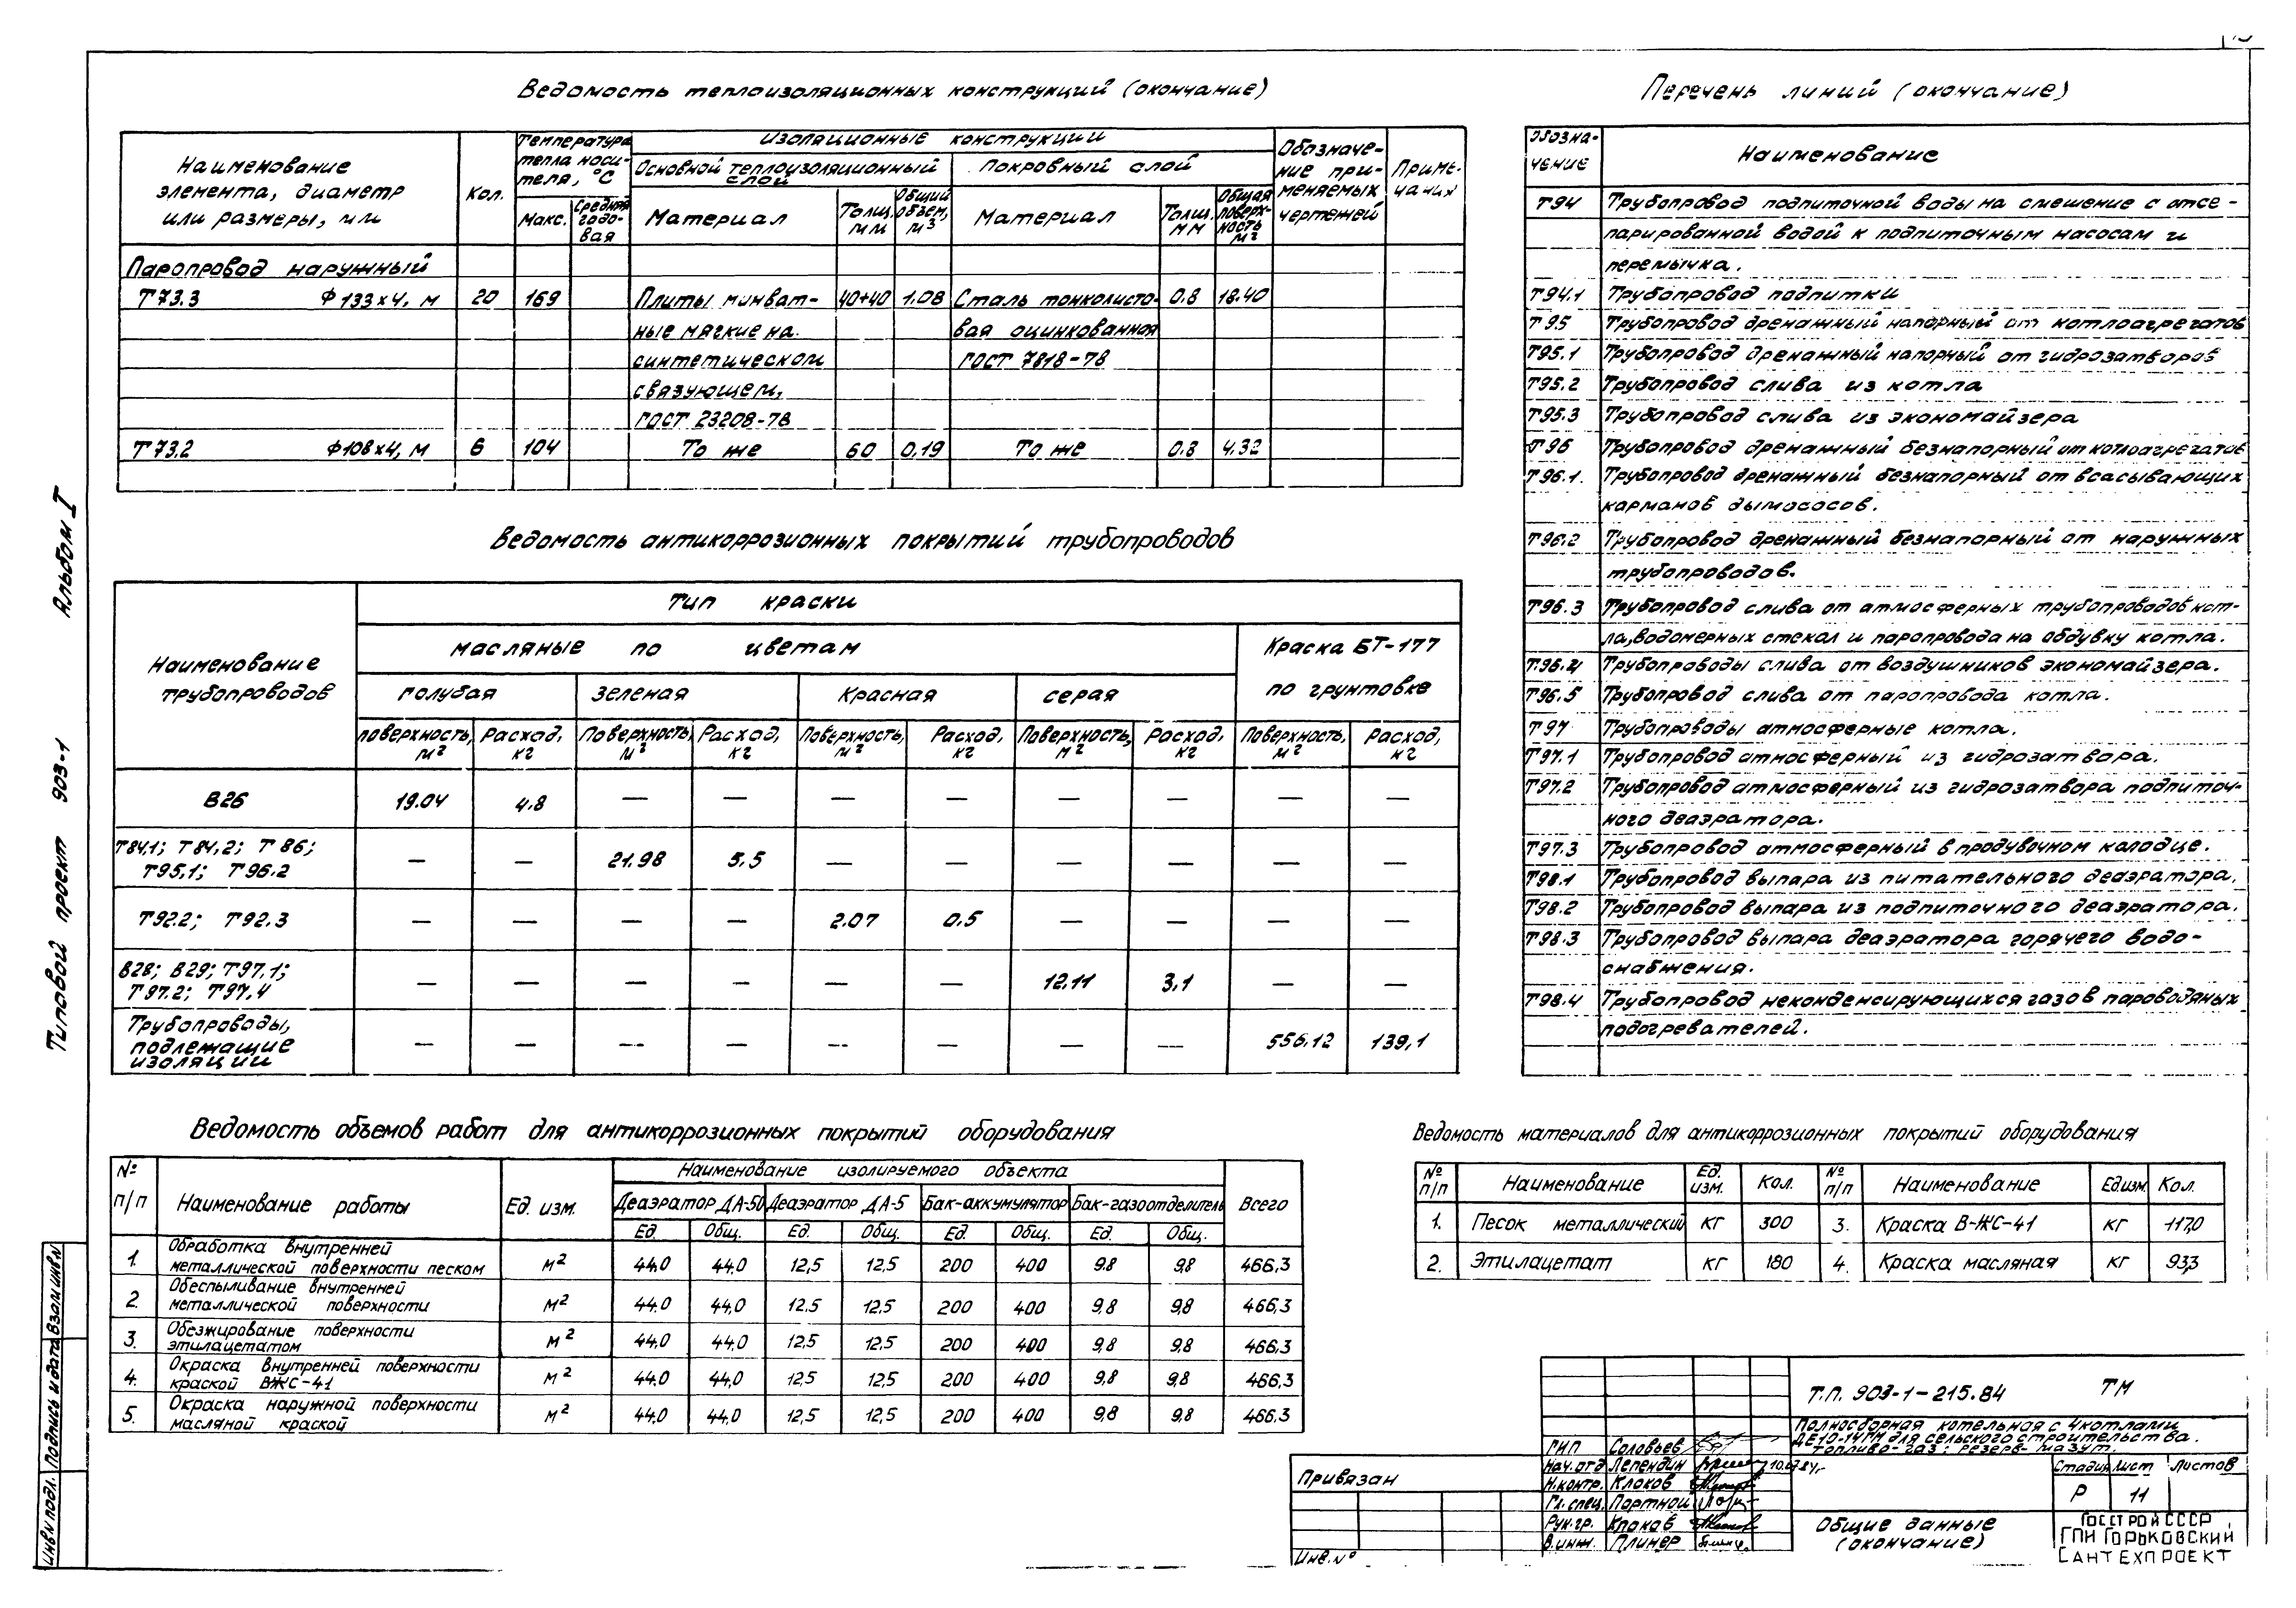 Ведомость теплоизоляционных конструкций (окончание)
Наименование элемента, диаметр или размеры, мм | Кол. | Температура тепла носителя, °С | Изоляционные конструкции | Обозначение применяемых чертежей | Примечания
Макс. | Средняя годовая | Основной теплоизоляционный слой | Покровный слой
Материал | Толщ. мм | Общий объем, м3 | Материал | Толщ. мм | Общая поверхность м2
Паропровод наружный
Т73.3 Ф133х4, м | 20 | 169 | Плиты минват- | 40+40 | 1.08 | Сталь тонколисто- | 0.8 | 18.40
ные мягкие на | вая оцинкованная
синтетическом | ГОСТ 7818-78
связующем,
ГОСТ 23208-78
Т73.2 Ф108х4, м | 6 | 104 | То же | 60 | 0.19 | То же | 0.8 | 4.32
Ведомость антикоррозионных покрытий трубопроводов
Наименование трубопроводов | Тип краски
масляные по цветам | Краска БТ-177 по грунтовке
голубая | зеленая | Красная | серая
Поверхность, м2 | Расход, кг | Поверхность, м2 | Расход, кг | Поверхность, м2 | Расход, кг | Поверхность, м2 | Расход, кг | Поверхность, м2 | Расход, кг
В26 | 19.04 | 4.8 | — | — | — | — | — | — | — | —
Т84.1; Т84.2; Т86; Т95.1; Т96.2 | — | — | 21.98 | 5.5 | — | — | — | — | — | —
Т92.2; Т92.3 | — | — | — | — | 2.07 | 0.5 | — | — | — | —
В28; В29; Т97.1; Т97.2; Т97.4 | — | — | — | — | — | — | 12.11 | 3,1 | — | —
Трубопроводы, подлежащие изоляции | — | — | — | — | — | — | — | — | 556.12 | 139,1
Перечень линий (окончание)
Обозна-чение | Наименование
Т94 | Трубопровод подпиточной воды на смешение с отсе-
парированной водой к подпиточным насосам и
перемычка.
Т94.1 | Трубопровод подпитки
Т95 | Трубопровод дренажный напорный от котлоагрегатов
Т95.1 | Трубопровод дренажный напорный от гидрозатворов
Т95.2 | Трубопровод слива из котла
Т95.3 | Трубопровод слива из экономайзера
Т96 | Трубопровод дренажный безнапорный от котлоагрегатов
Т96.1. | Трубопровод дренажный безнапорный от всасывающих
карманов дымососов.
Т96.2 | Трубопровод дренажный безнапорный от наружных
трубопроводов.
Т96.3 | Трубопровод слива от атмосферных трубопроводов кот-
ла, водомерных стекол и паропровода на обдувку котла.
Т.96.4 | Трубопроводы слива от воздушников экономайзера.
Т96.5 | Трубопровод слива от паропровода котла.
Т97 | Трубопроводы атмосферные котла.
Т97.1 | Трубопровод атмосферный из гидрозатвора.
Т97.2 | Трубопровод атмосферный из гидрозатвора подпиточ-
ного деаэратора.
Т97.3 | Трубопровод атмосферный в продувочном колодце.
Т98.1 | Трубопровод выпара из питательного деаэратора.
Т98.2 | Трубопровод выпара из подпиточного деаэратора.
Т98.3 | Трубопровод выпара деаэратора горячего водо-
снабжения.
Т98.4 | Трубопровод неконденсирующихся газов пароводяных
подогревателей.
Ведомость объемов работ для антикоррозионных покрытий оборудования
№ п/п | Наименование работы | Ед. изм. | Наименование изолируемого объекта | Всего
Деаэратор ДА-50 | Деаэратор ДА-5 | Бак-аккумулятор | Бак-газоотделитель
Ед. | Общ. | Ед. | Общ. | Ед. | Общ. | Ед. | Общ.
1. | Обработка внутренней металлической поверхности песком | м2 | 44.0 | 44,0 | 12,5 | 12,5 | 200 | 400 | 9.8 | 9,8 | 466,3
2. | Обеспыливание внутренней металлической поверхности | м2 | 44.0 | 44,0 | 12.5 | 12.5 | 200 | 400 | 9,8 | 9,8 | 466,3
3. | Обезжиривание поверхности этилацетатом | м2 | 44.0 | 44,0 | 12,5 | 12,5 | 200 | 400 | 9,8 | 9,8 | 466,3
4. | Окраска внутренней поверхности краской ВЖС-41 | м2 | 44.0 | 44,0 | 12,5 | 12,5 | 200 | 400 | 9,8 | 9,8 | 466,3
5. | Окраска наружной поверхности масляной краской | м2 | 44,0 | 44,0 | 12,5 | 12,5 | 200 | 400 | 9,8 | 9,8 | 466,3
Ведомость материалов для антикоррозионных покрытий оборудования
№ п/п | Наименование | Ед. изм. | Кол. | № п/п | Наименование | Ед изм. | Кол.
1. | Песок металлический | кг | 300 | 3. | Краска В-ЖС-41 | кг | 117,0
2. | Этилацетат | кг | 180 | 4. | Краска масляная | кг | 93,3
Т.П. 903-1-215.84 ТМ
Полносборная котельная с 4 котлами
ДЕ10-14ГМ для сельского строительства.
Топливо-газ; резерв-мазут.
ГИП Соловьев
Нач.отд Лепендин
Н.контр. Клоков
Гл.спец. Портной
Рук.гр. Клоков
В.инж. Плинер
Стадия | Лист | Листов
Р | 11
Общие данные
(окончание)
ГОССТРОЙ СССР
ГПИ ГОРЬКОВСКИЙ
САНТЕХПРОЕКТ
Привязан
Инв.№
Типовой проект 903-1 Альбом I
Инв№ подл. | Подпись и дата | Взам инв№